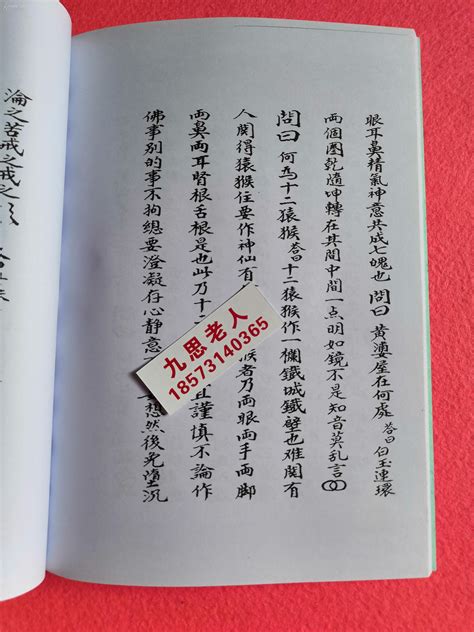 眼耳鼻精氣神意共成七魄也 問曰 黃婆屋在何處 答曰 白玉連環
兩個圈乾隨呷轉在其間中間一点明如鏡不是知音莫乱言
問曰 何為十二猿猴 答曰 十二猿猴作一欄鐵城鐵壁也难関有
人関得猿猴住要作神仙有 猴者乃両眼両手両脚
両鼻両耳腎根舌根是也此乃十 且謹慎不論作
佛事别的事不拘總要澄凝存心静意 想然後免墮沉
淪之苦戒之戒之
九思老人
18573140365